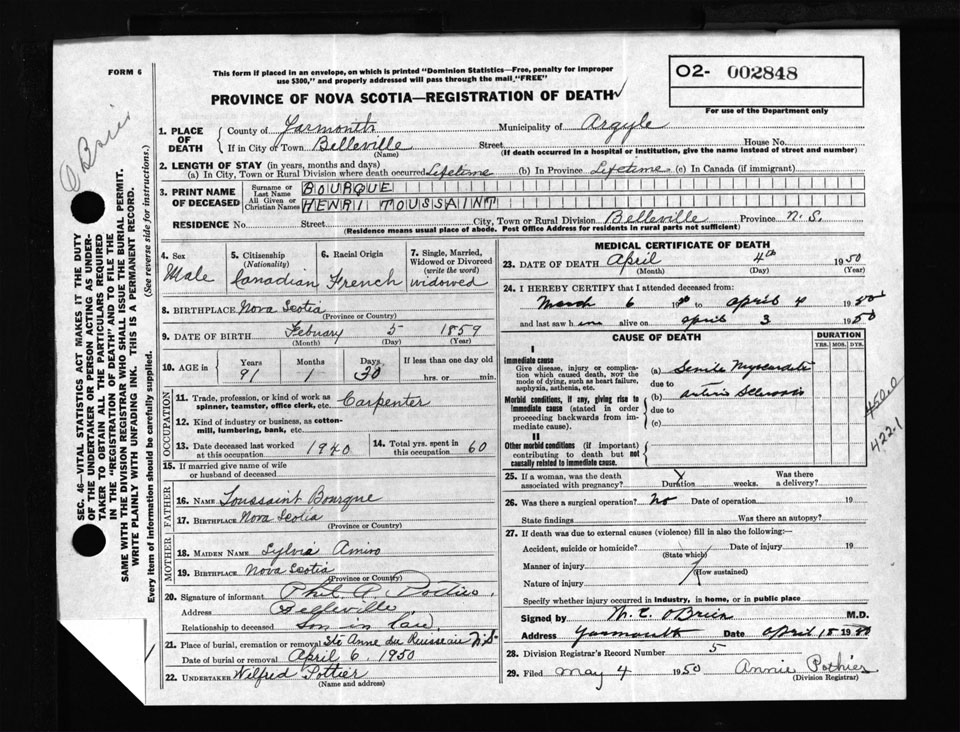 FORM 6
This form if placed in an envelope, on which is printed "Dominion Statistics—Free, penalty for improper
use $300," and properly addressed will pass through the mail "FREE"
O2- 002848
For use of the Department only
PROVINCE OF NOVA SCOTIA—REGISTRATION OF DEATH ✓
O'Brien
1. PLACE OF DEATH { County of Yarmouth Municipality of Argyle
If in City or Town Belleville (Name) Street House No.
(If death occurred in a hospital or institution, give the name instead of street and number)
2. LENGTH OF STAY (in years, months and days)
(a) In City, Town or Rural Division where death occurred Lifetime (b) In Province Lifetime (c) In Canada (if immigrant)
3. PRINT NAME OF DECEASED { Surname or Last Name BOURQUE
All Given or Christian Names HENRI TOUSSAINT
RESIDENCE No. Street City, Town or Rural Division Belleville Province N.S.
(Residence means usual place of abode. Post Office Address for residents in rural parts not sufficient)
SEC. 46—VITAL STATISTICS ACT MAKES IT THE DUTY
OF THE UNDERTAKER OR PERSON ACTING AS UNDER-
TAKER TO OBTAIN ALL THE PARTICULARS REQUIRED
IN THE "REGISTRATION OF DEATH" AND TO FILE THE
SAME WITH THE DIVISION REGISTRAR WHO SHALL ISSUE THE BURIAL PERMIT.
WRITE PLAINLY WITH UNFADING INK. THIS IS A PERMANENT RECORD.
Every item of information should be carefully supplied. (See reverse side for instructions.)
4. Sex Male
5. Citizenship (Nationality) Canadian
6. Racial Origin French
7. Single, Married, Widowed or Divorced (write the word) widowed
8. BIRTHPLACE Nova Scotia
(Province or Country)
9. DATE OF BIRTH Febuary 5 1859
(Month) (Day) (Year)
10. AGE in { Years 91 Months 1 Days 30 If less than one day old hrs. or min.
OCCUPATION
11. Trade, profession, or kind of work as spinner, teamster, office clerk, etc. Carpenter
12. Kind of industry or business, as cotton-mill, lumbering, bank, etc.
13. Date deceased last worked at this occupation 1940 14. Total yrs. spent in this occupation 60
15. If married give name of wife or husband of deceased
FATHER
16. NAME Toussaint Bourque
17. BIRTHPLACE Nova Scotia
(Province or Country)
MOTHER
18. MAIDEN NAME Sylvia Amiro
19. BIRTHPLACE Nova Scotia
(Province or Country)
20. Signature of informant Phil. A. Pottier
Address Belleville,
Relationship to deceased Son in law
21. Place of burial, cremation or removal Ste Anne du Ruisseau N.S-
Date of burial or removal April 6, 1950
22. UNDERTAKER Wilfred Pottier
(Name and address)
MEDICAL CERTIFICATE OF DEATH
23. DATE OF DEATH April 4th 1950
(Month) (Day) (Year)
24. I HEREBY CERTIFY that I attended deceased from:
March 6 to April 4 1950
and last saw him alive on April 3 1950
CAUSE OF DEATH DURATION
YRS. MOS. DYS.
I
Immediate cause
Give disease, injury or complication which caused death, NOT the mode of dying, such as heart failure, asphyxia, asthenia, etc.
(a) Senile Myocarditis
due to
Morbid conditions, if any, giving rise to immediate cause (stated in order proceeding backwards from immediate cause).
(b) Arterio Sclerosis
due to
(c)
II
Other morbid conditions (if important) contributing to death but not causally related to immediate cause.
450.0
422.1
25. If a woman, was the death associated with pregnancy? Duration weeks. Was there a delivery?
26. Was there a surgical operation? No Date of operation 19
State findings Was there an autopsy?
27. If death was due to external causes (violence) fill in also the following:—
Accident, suicide or homicide? Date of injury 19
(State which)
Manner of injury
(How sustained)
Nature of injury
Specify whether injury occurred in industry, in home, or in public place
Signed by W. C. O'Brien M.D.
Address Yarmouth Date April 18 1950
28. Division Registrar's Record Number 5
29. Filed May 4 1950 Annie Pothier
(Division Registrar)